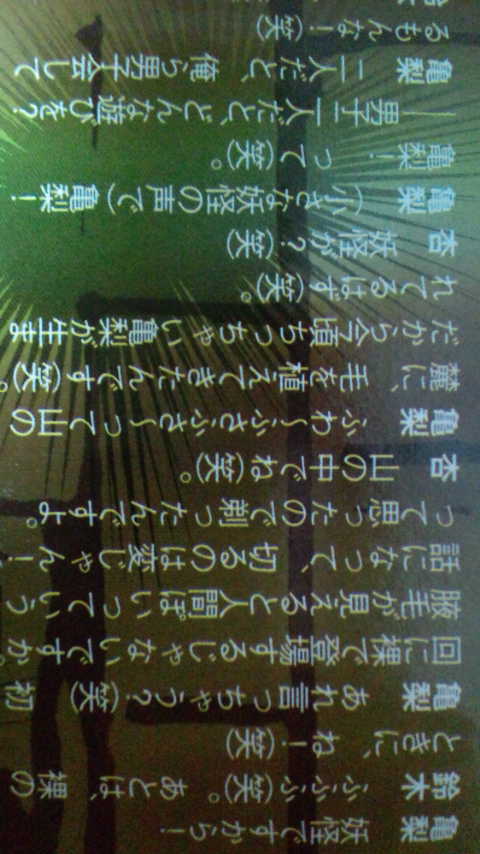 妖怪ですから！
鈴木　ふふふ（笑）。あとは、裸の
ときに、ね！（笑）
亀梨　あれ言っちゃう？（笑）　初
回に裸で登場するじゃないですか。
脇毛が見えると人間ぽいっていう
話になって、切るのは変じゃん！
って思ったので剃ったんですよ。
杏　山の中でね（笑）。
亀梨　ふわ〜ふさふさ〜って山の
麓に、毛を植えてきたんです（笑）。
だから今頃ちっちゃい亀梨が生ま
れてるはず（笑）。
杏　妖怪が？（笑）
亀梨　（小さな妖怪の声で）亀梨！
亀梨！って（笑）。
──男子二人だと、どんな遊びを？
亀梨　二人だと、俺ら男子会して
るもんな！（笑）